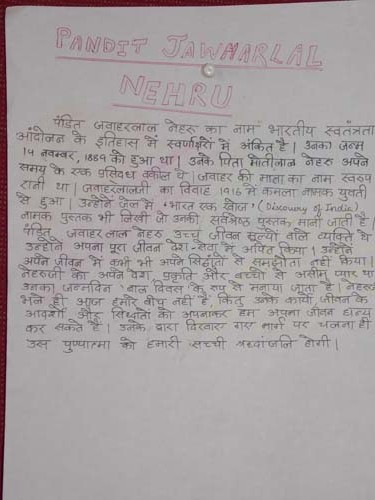 PANDIT JAWHARLAL
NEHRU
पंडित जवाहरलाल नेहरू का नाम भारतीय स्वतंत्रता
आंदोलन के इतिहास में स्वर्णाक्षरों में अंकित है। उनका जन्म
14 नवम्बर, 1889 को हुआ था। उनके पिता मोतीलाल नेहरू अपने
समय के एक प्रसिद्ध वकील थे। जवाहर की माता का नाम स्वरुप
रानी था। जवाहरलालजी का विवाह 1916 में कमला नामक युवती
से हुआ। उन्होंने जेल में 'भारत एक खोज' (Discovery of India)
नामक पुस्तक भी लिखी जो उनकी सर्वश्रेष्ठ पुस्तक मानी जाती है।
पंडित जवाहरलाल नेहरू उच्च जीवन मूल्यों वाले व्यक्ति थे
उन्होंने अपना पूरा जीवन देश-सेवा में अर्पित किया। उन्होंने
अपने जीवन में कभी भी अपने सिद्धांतों से समझौता नहीं किया।
नेहरूजी को अपने देश, प्रकृति और बच्चों से असीम प्यार था
उनका जन्मदिन 'बाल दिवस' के रुप से मनाया जाता है। नेहरू
भले ही आज हमारे बीच नहीं है, किंतु उनके कार्यों, जीवन के
आदर्शों और सिद्धांतों को अपनाकर हम अपना जीवन धन्य
कर सकते है। उनके द्वारा दिखाए गए मार्ग पर चलना ही
उस पुण्यात्मा को हमारी सच्ची श्रध्दांजलि होगी।